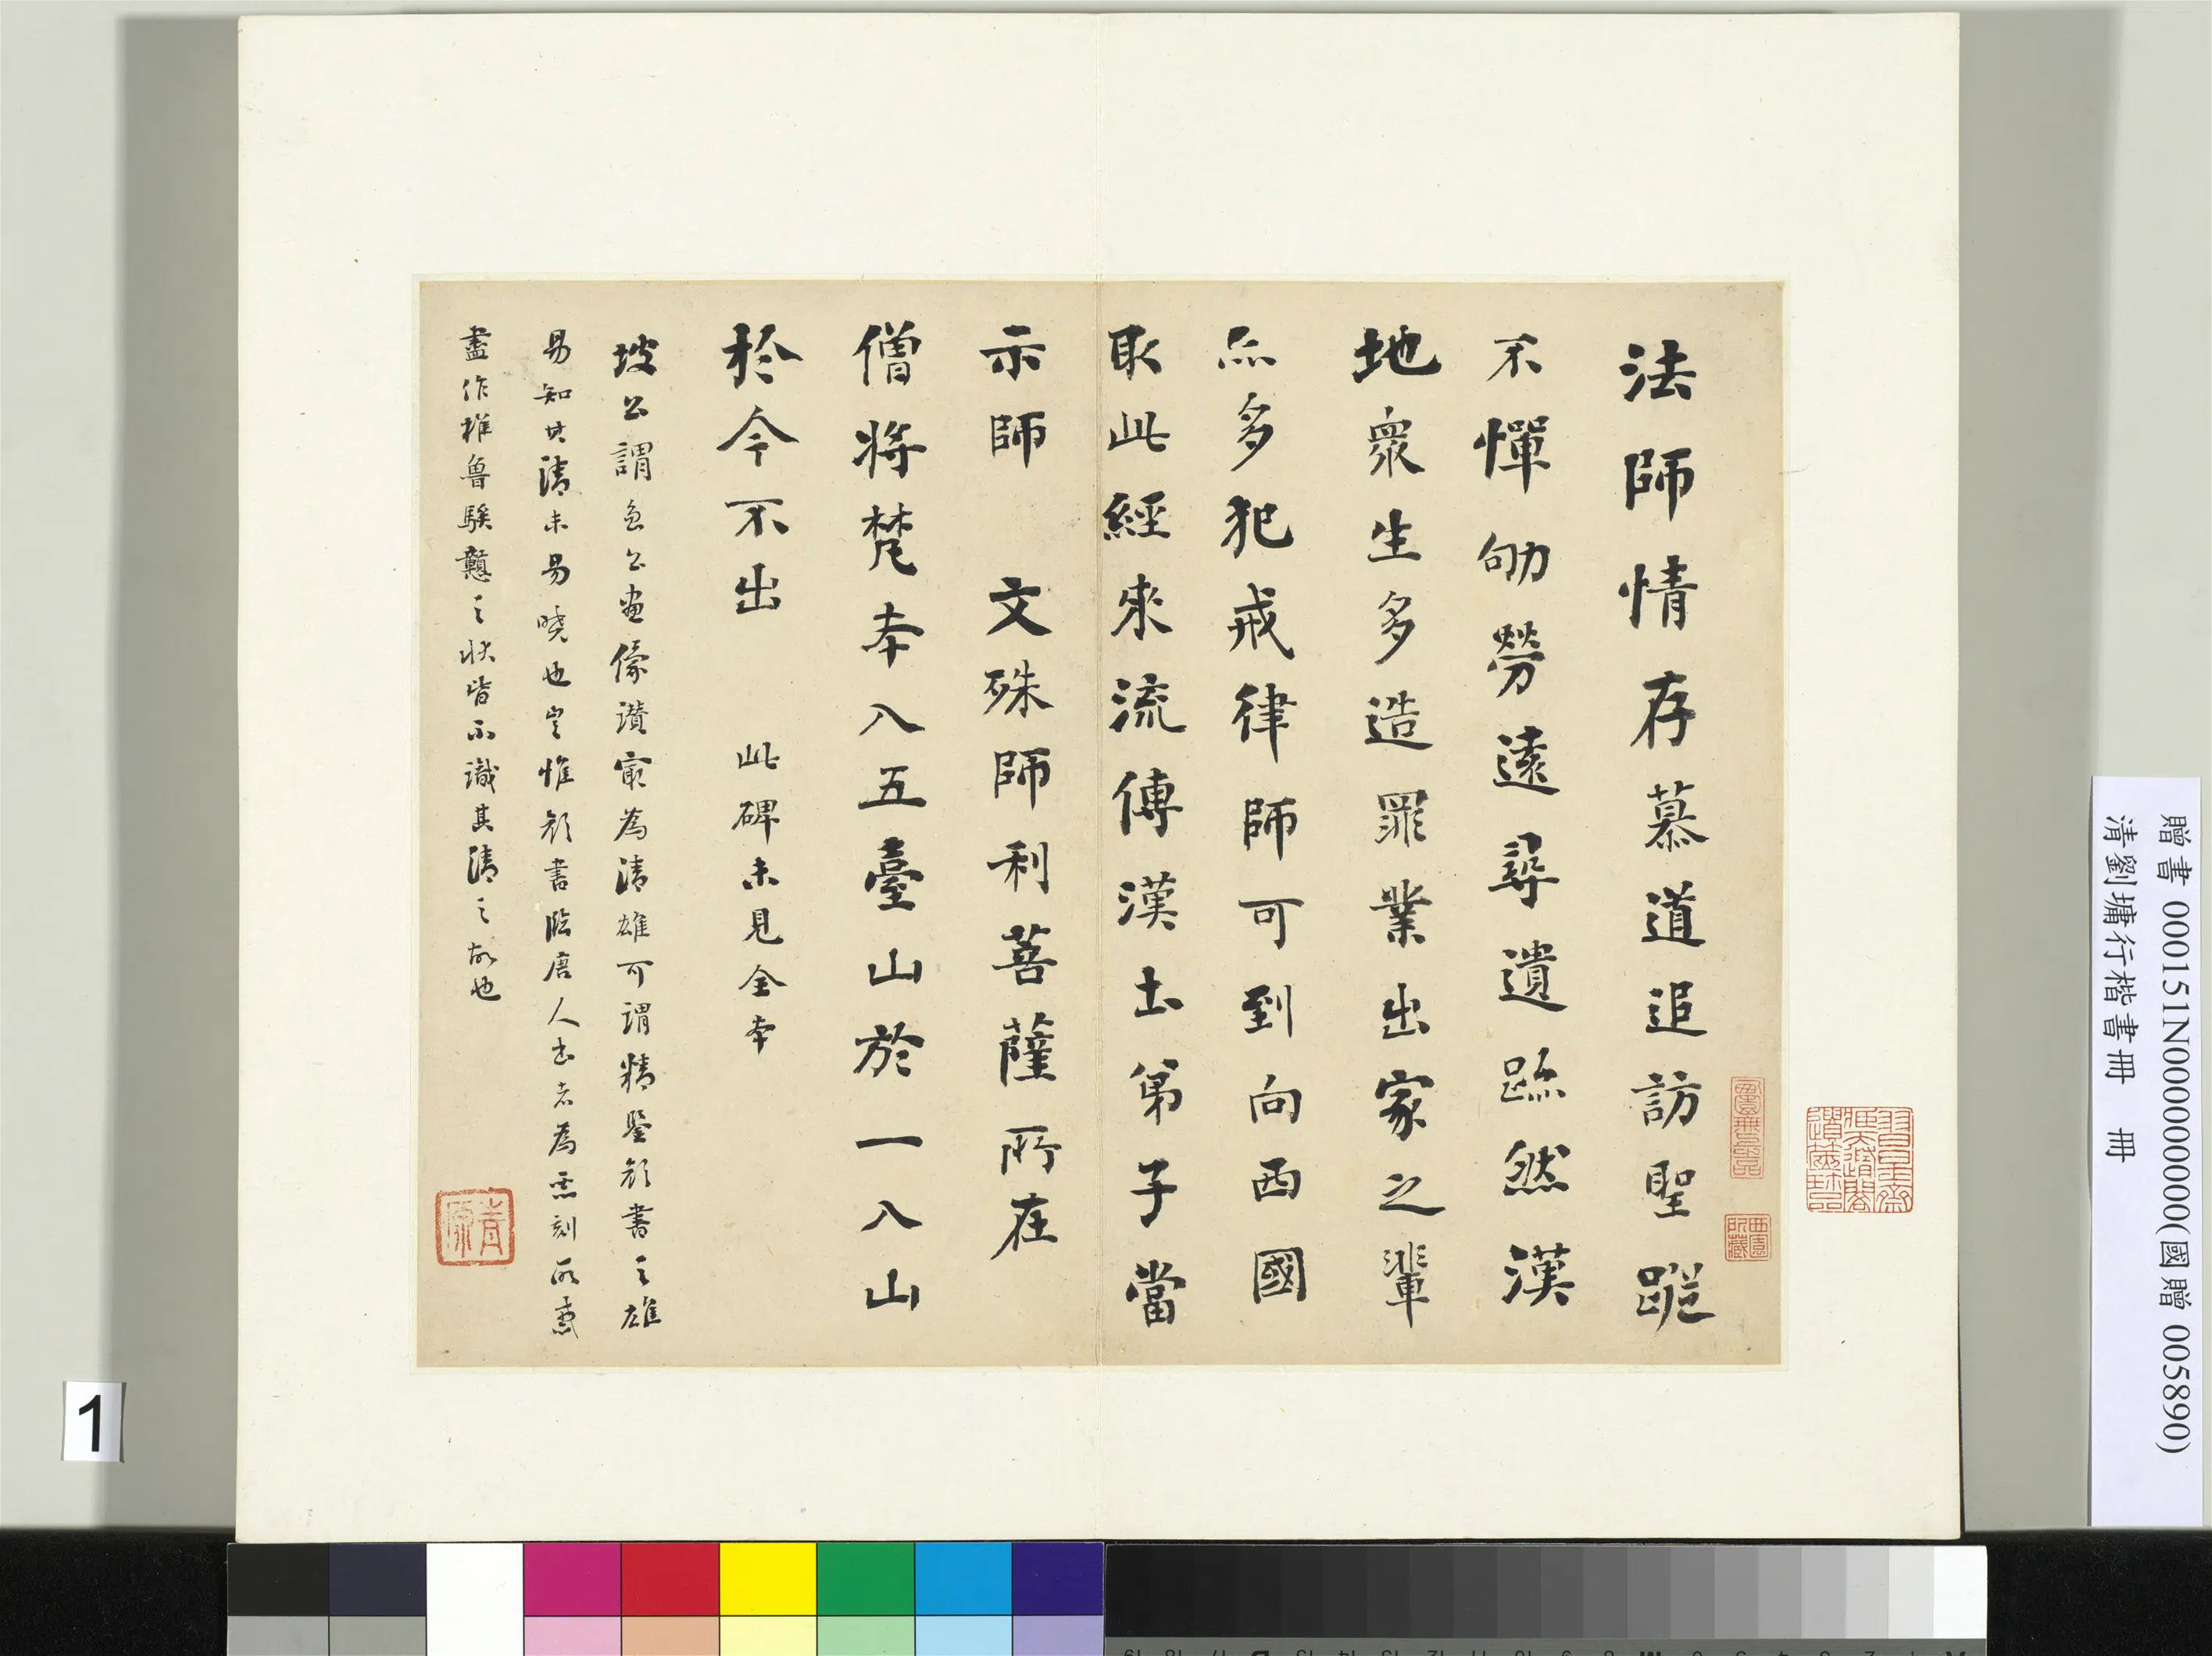 法師情存慕道追訪聖蹤
不憚劬勞遠尋遺跡然漢
地衆生多造罪業出家之輩
亦多犯戒律師可到向西國
取此經來流傳漢土弟子當
示師　文殊師利菩薩所在
僧將梵本入五臺山於一入山
於今不出　此碑未見全本
坡公謂魚公畫像讚最為清雄可謂精鑒顏書之雄
易知其清未易曉也豈惟顏書臨唐人書者為棗刻所惑
盡作椎魯騃戇之狀皆不識其清之故也
青原
西園所藏
贈書 000151N000000000(國贈 005890)
清劉墉行楷書冊　冊
1